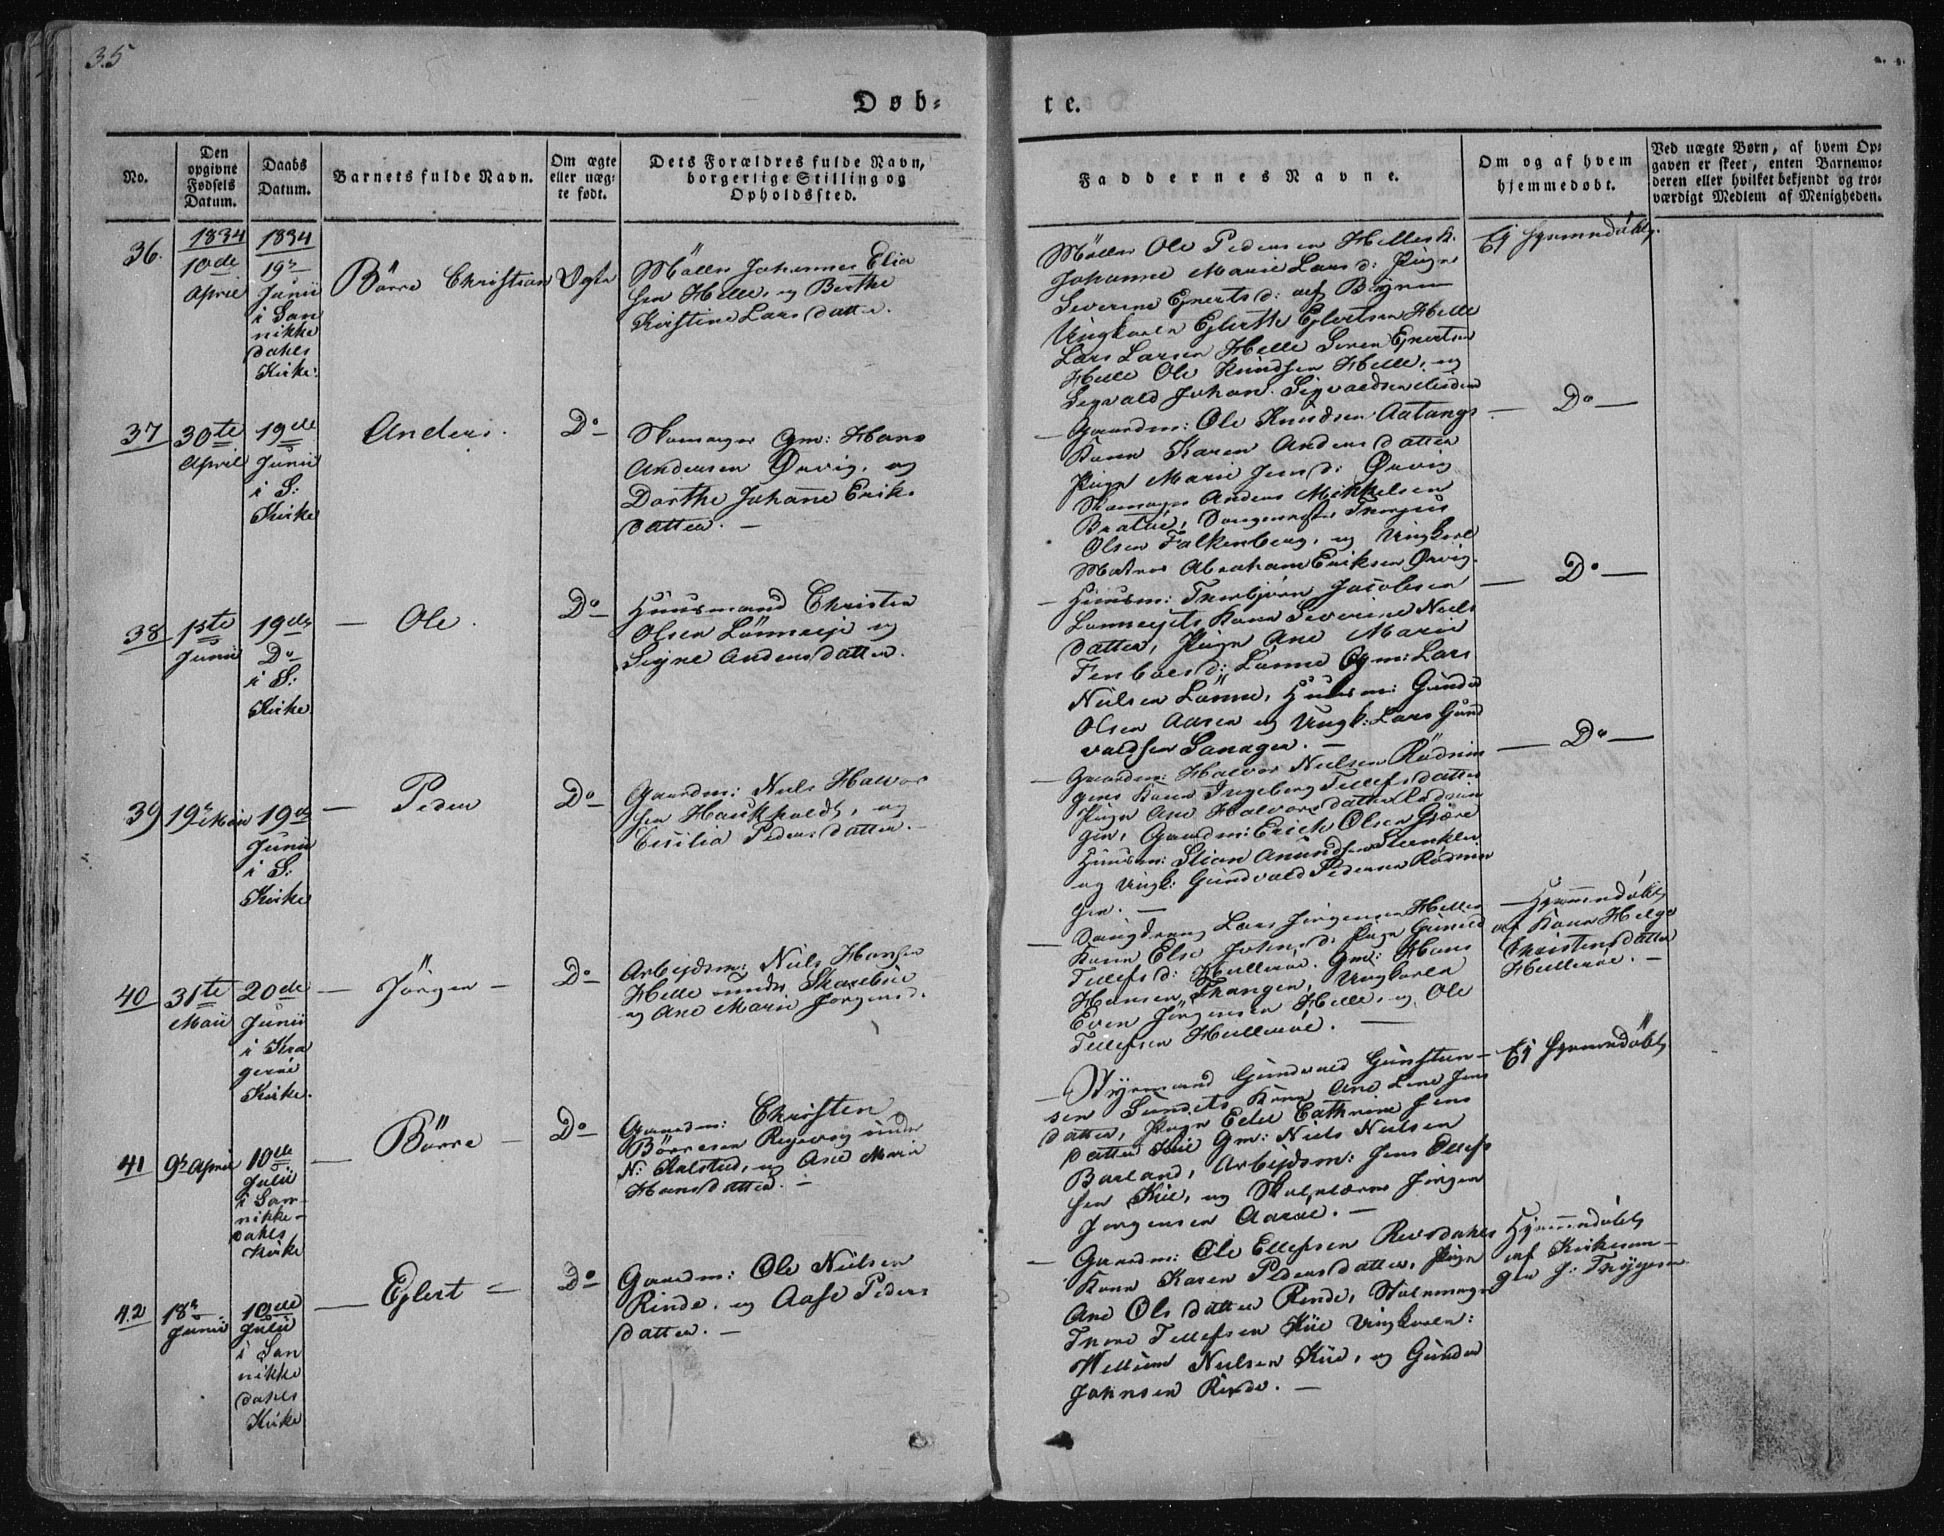 35
Døb-
te.
No.
Den
opgivne
Fødsels
Datum.
Daabs
Datum.
Barnets fulde Navn.
Om ægte
eller uæg-
te født.
Dets Forældres fulde Navn,
borgerlige Stilling og
Opholdssted.
Faddernes Navne.
Om og af hvem
hjemmedøbt.
Ved uægte Børn, af hvem Op-
gaven er skeet, enten Barnemo-
deren eller hvilket bekjendt og tro-
værdigt Medlem af Menigheden.
36.
1834
10de
April
1834
19de
Junii
i San
nikke
dahls
Kirke.
Börre Christian
Ægte
Möller Johannes Elia
sen Helle, og Berthe
Kirstine Larsdatter.
Möller Ole Pedersen Helles k.
Johanne Marie Larsd: Pige
Severine Ejvertsd: af
Ungkarle Ejlert Ejlertsen Helle
Lars Larsen Helle Sören Ejvertsen
Helle Ole Knudsen Helle, og
Sigvald Johan Sigvaldsen
Ej hjemmedöbt.
37
30te
April
19de
Junii
i S:
Kirke
Anders.
Do
Skomager Gm: Hans
Andersen Ørvig, og
Dorthe Johanne Eriks
datter. —
— Gaardm: Ole Knudsen Aatangs
Kone Karen Andersdatter
Pige Marie Jensd: Ørvig
Skomager Anders Mikkelsen
Bratlie, Torjus
Olsen Falkenberg, og Ungkarl
Matros Abraham Eriksen Ørvig.
— Do —
38
1ste
Junii
19de
Do
i S:
Kirke.
— Ole.
Do
Huusmand Christen
Olsen Lönneeje og
Signe Andersdatter.
— Huusm: Thorbjörn Jacobsen
Lönneejets Kone Severine Niels
datter, Pige Ane Marie
d: Lönne Gm: Lars
Nielsen Lönne, Huusm: Gunder
Olsen Aasen og Ungk: Lars Gund
valdsen Sanagen. —
— Do —
39
19de Maii
19de
Junii
i S:
Kirke
— Peder
Do
Gaardm: Niels Halvor
sen Haukholdt, og
Cesilia Pedersdatter. —
— Gaardm: Halvor Nielsen Rödnin
gens Kone Ingeborg Tellefsdatter
Pige Ane Halvorsdatter Rödnin
gen, Gaardm: Erich Olsen Gjære
Huusm: Stian Anundsen
og Ungk: Gundvald Pedersen Rödnin
gen. —
— Do —
40
31te
Maii
20de
Junii
i Kra
geröe
Kirke.
— Jörgen —
Do
Arbejdsm: Niels Hansen
Helle under Skarebüe
og Ane Marie Jörgensd.
— Lars Jörgensen Helles
Kone Else Johnsd: Pige Gunild
Tellefsd: Helleröe. Gm: Hans
Hansen Thangen, Ungkarle
Even Jörgensen Helle, og Ole
Tellefsen Helleröe. —
— Hjemmedöbt
af Kone Helge
Christensdatter
Helleröe. —
41
9de April
10de
Julii
i San-
nikke-
dahls
Kirke
— Börre —
Do
Gaardm: Christen
Börresen under
N: Kalstad, og Ane Marie
Hansdatter. —
— Styrmand Gundvald Gunsten-
sen Sundets Kone Ane Lene Jens
datter, Pige Edel Cathrine Jens
datter Kiil Gm: Niels Nielsen
Barland, Arbejdsm: Jens Ellefs
sen Kiil, og Skolelærer Jörgen
Jörgensen Aaröe. —
Ej hjemmedöbt
42
18de
Junii
10de
Julii
i San
nikke
dahls
Kirke
— Ejlert —
Do
Gaardm: Ole Nielsen
Rinde, og Aase Peders
datter. —
— Gaardm: Ole Ellefsen Reisdahls
Kone Karen Pedersdatter, Pige
Ane Olsdatter Rinde, Skolemager
Thore Tellefsen Kiil Ungkarle:
Willum Nielsen Kiil, og Gunder
Johnsen Rinde. —
Hjemmedöbt
af Kirkesan-
ger J: Thygesen